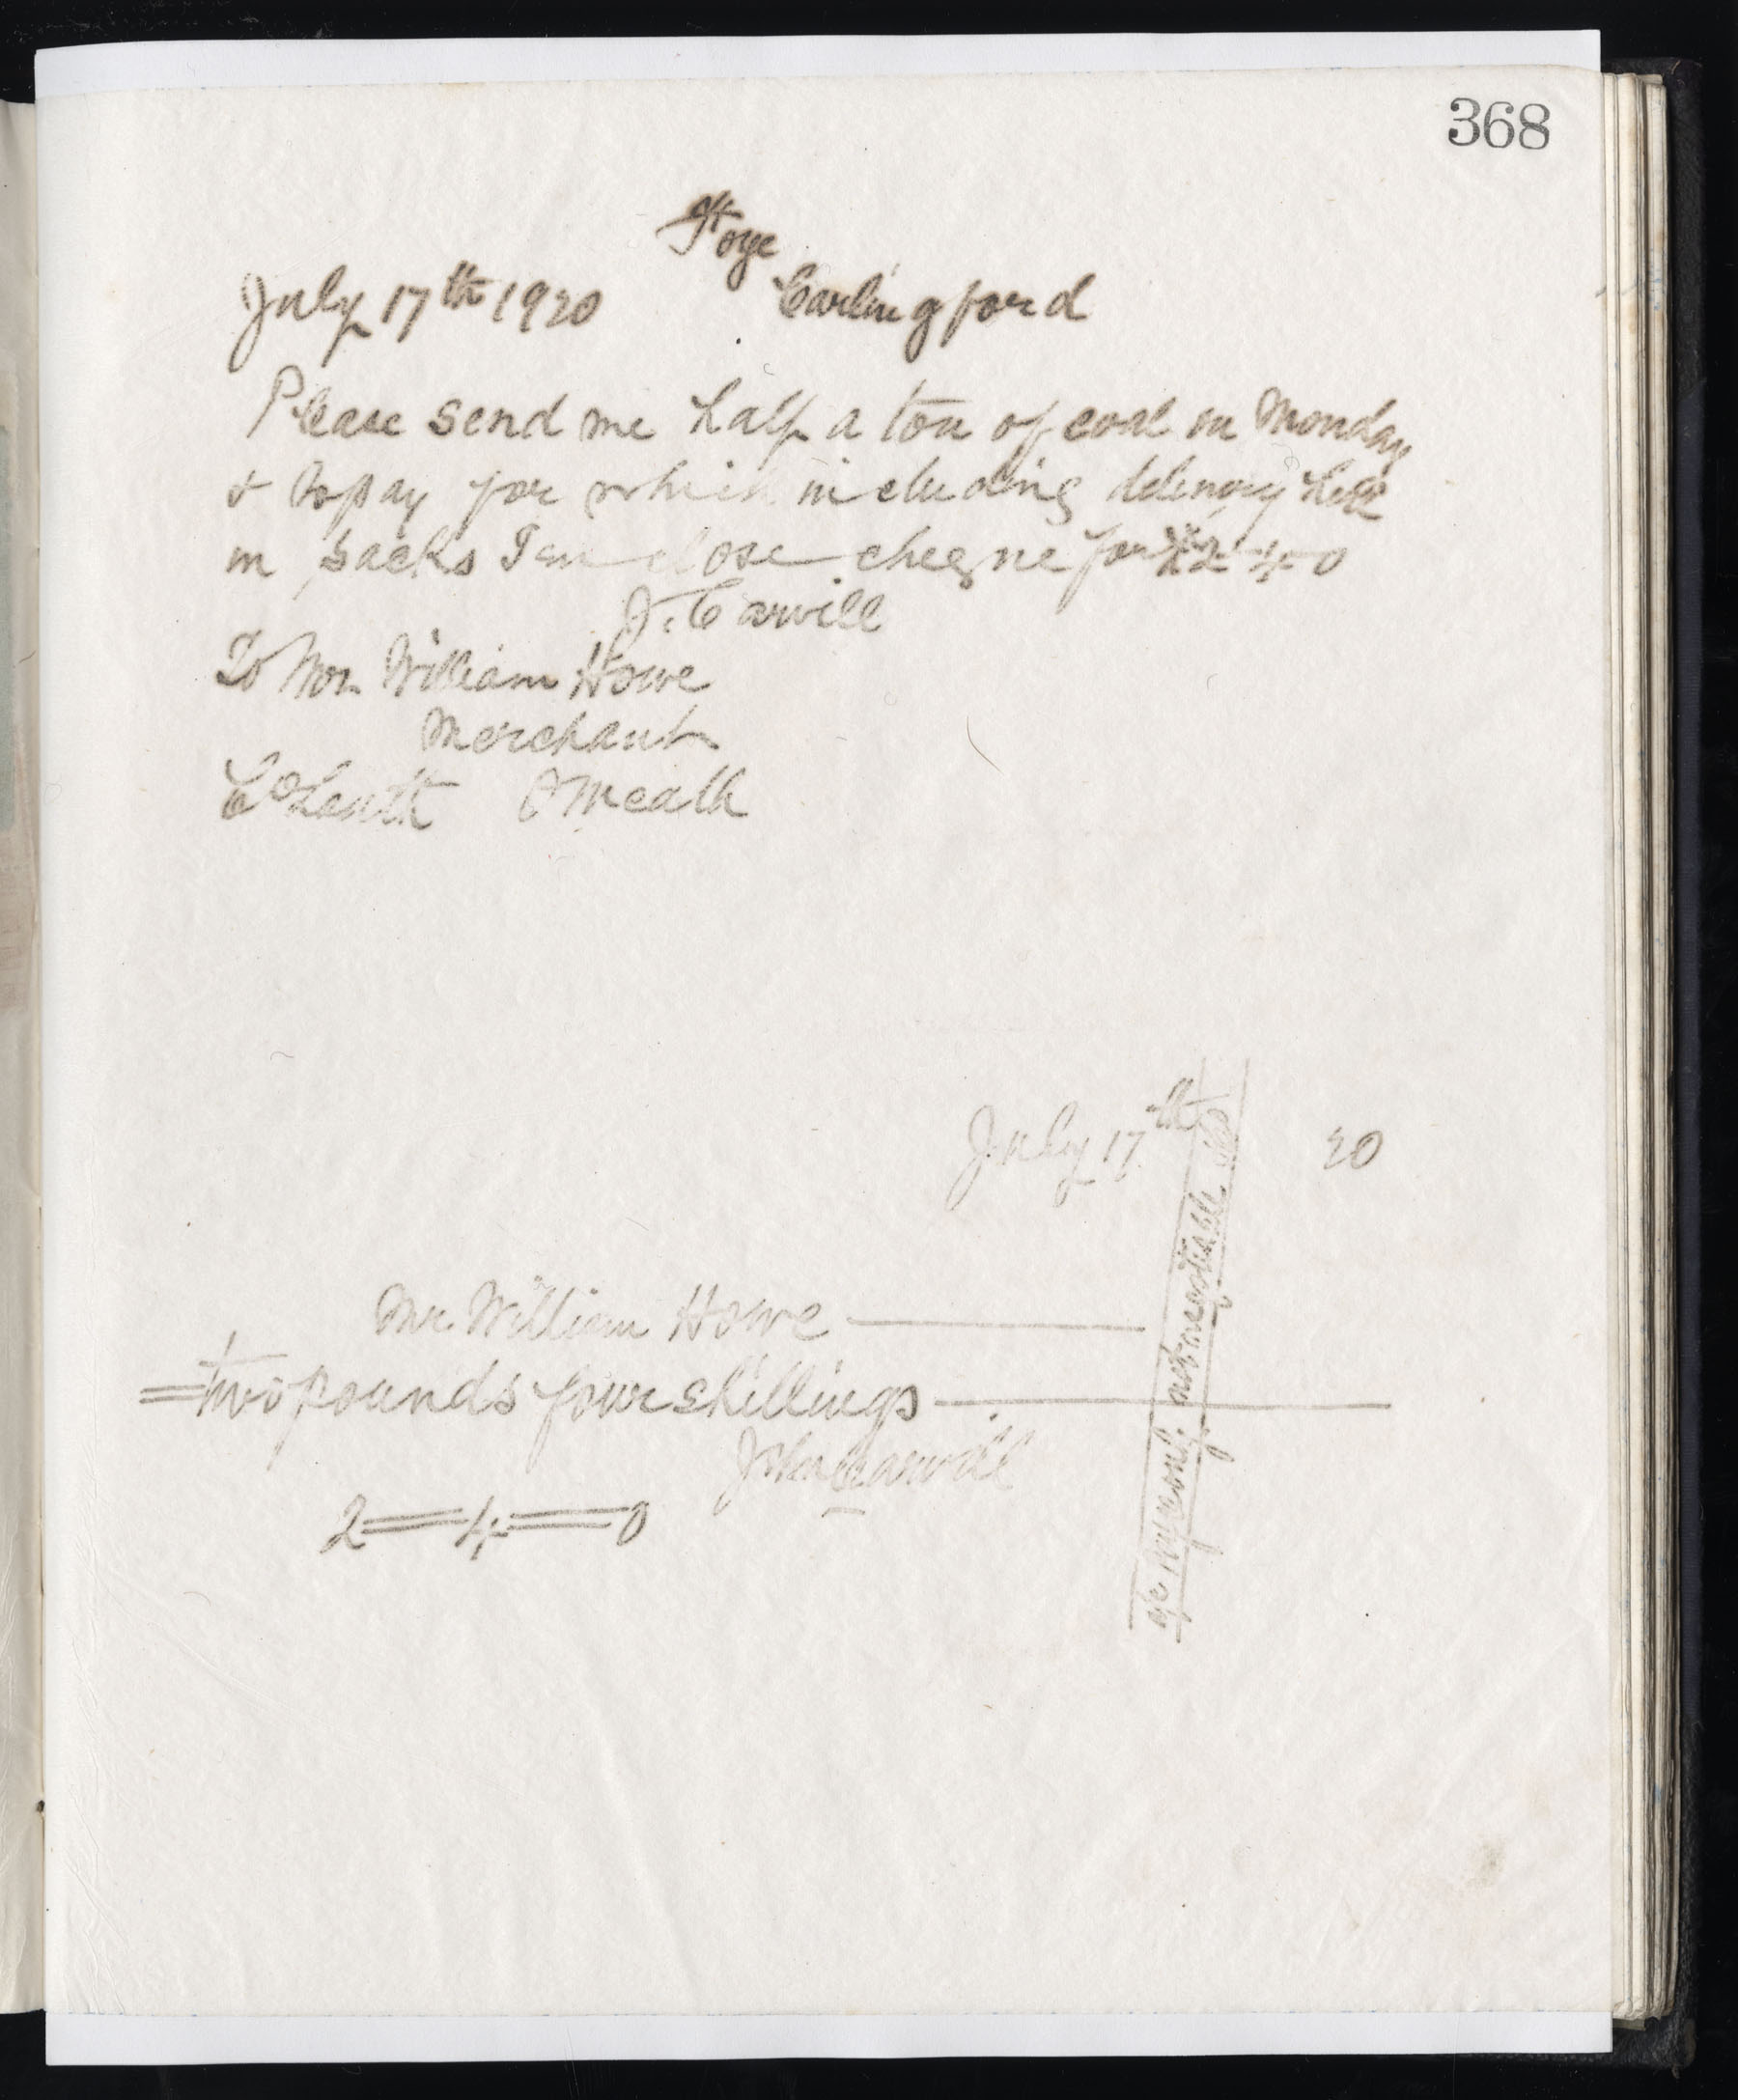 368
Foye
July 17th 1920 Carlingford
Please send me half a ton of coal on Monday
& to pay for which including delivery here
in sacks I enclose cheque for £2-4-0
J. Carvill
To Mr. William Howe
Merchant
Co Louth Omeath
July 17th 20
Mr William Howe
two pounds four shillings
John Carvill
2=4=0
a/c payee only. not negotiable &Co